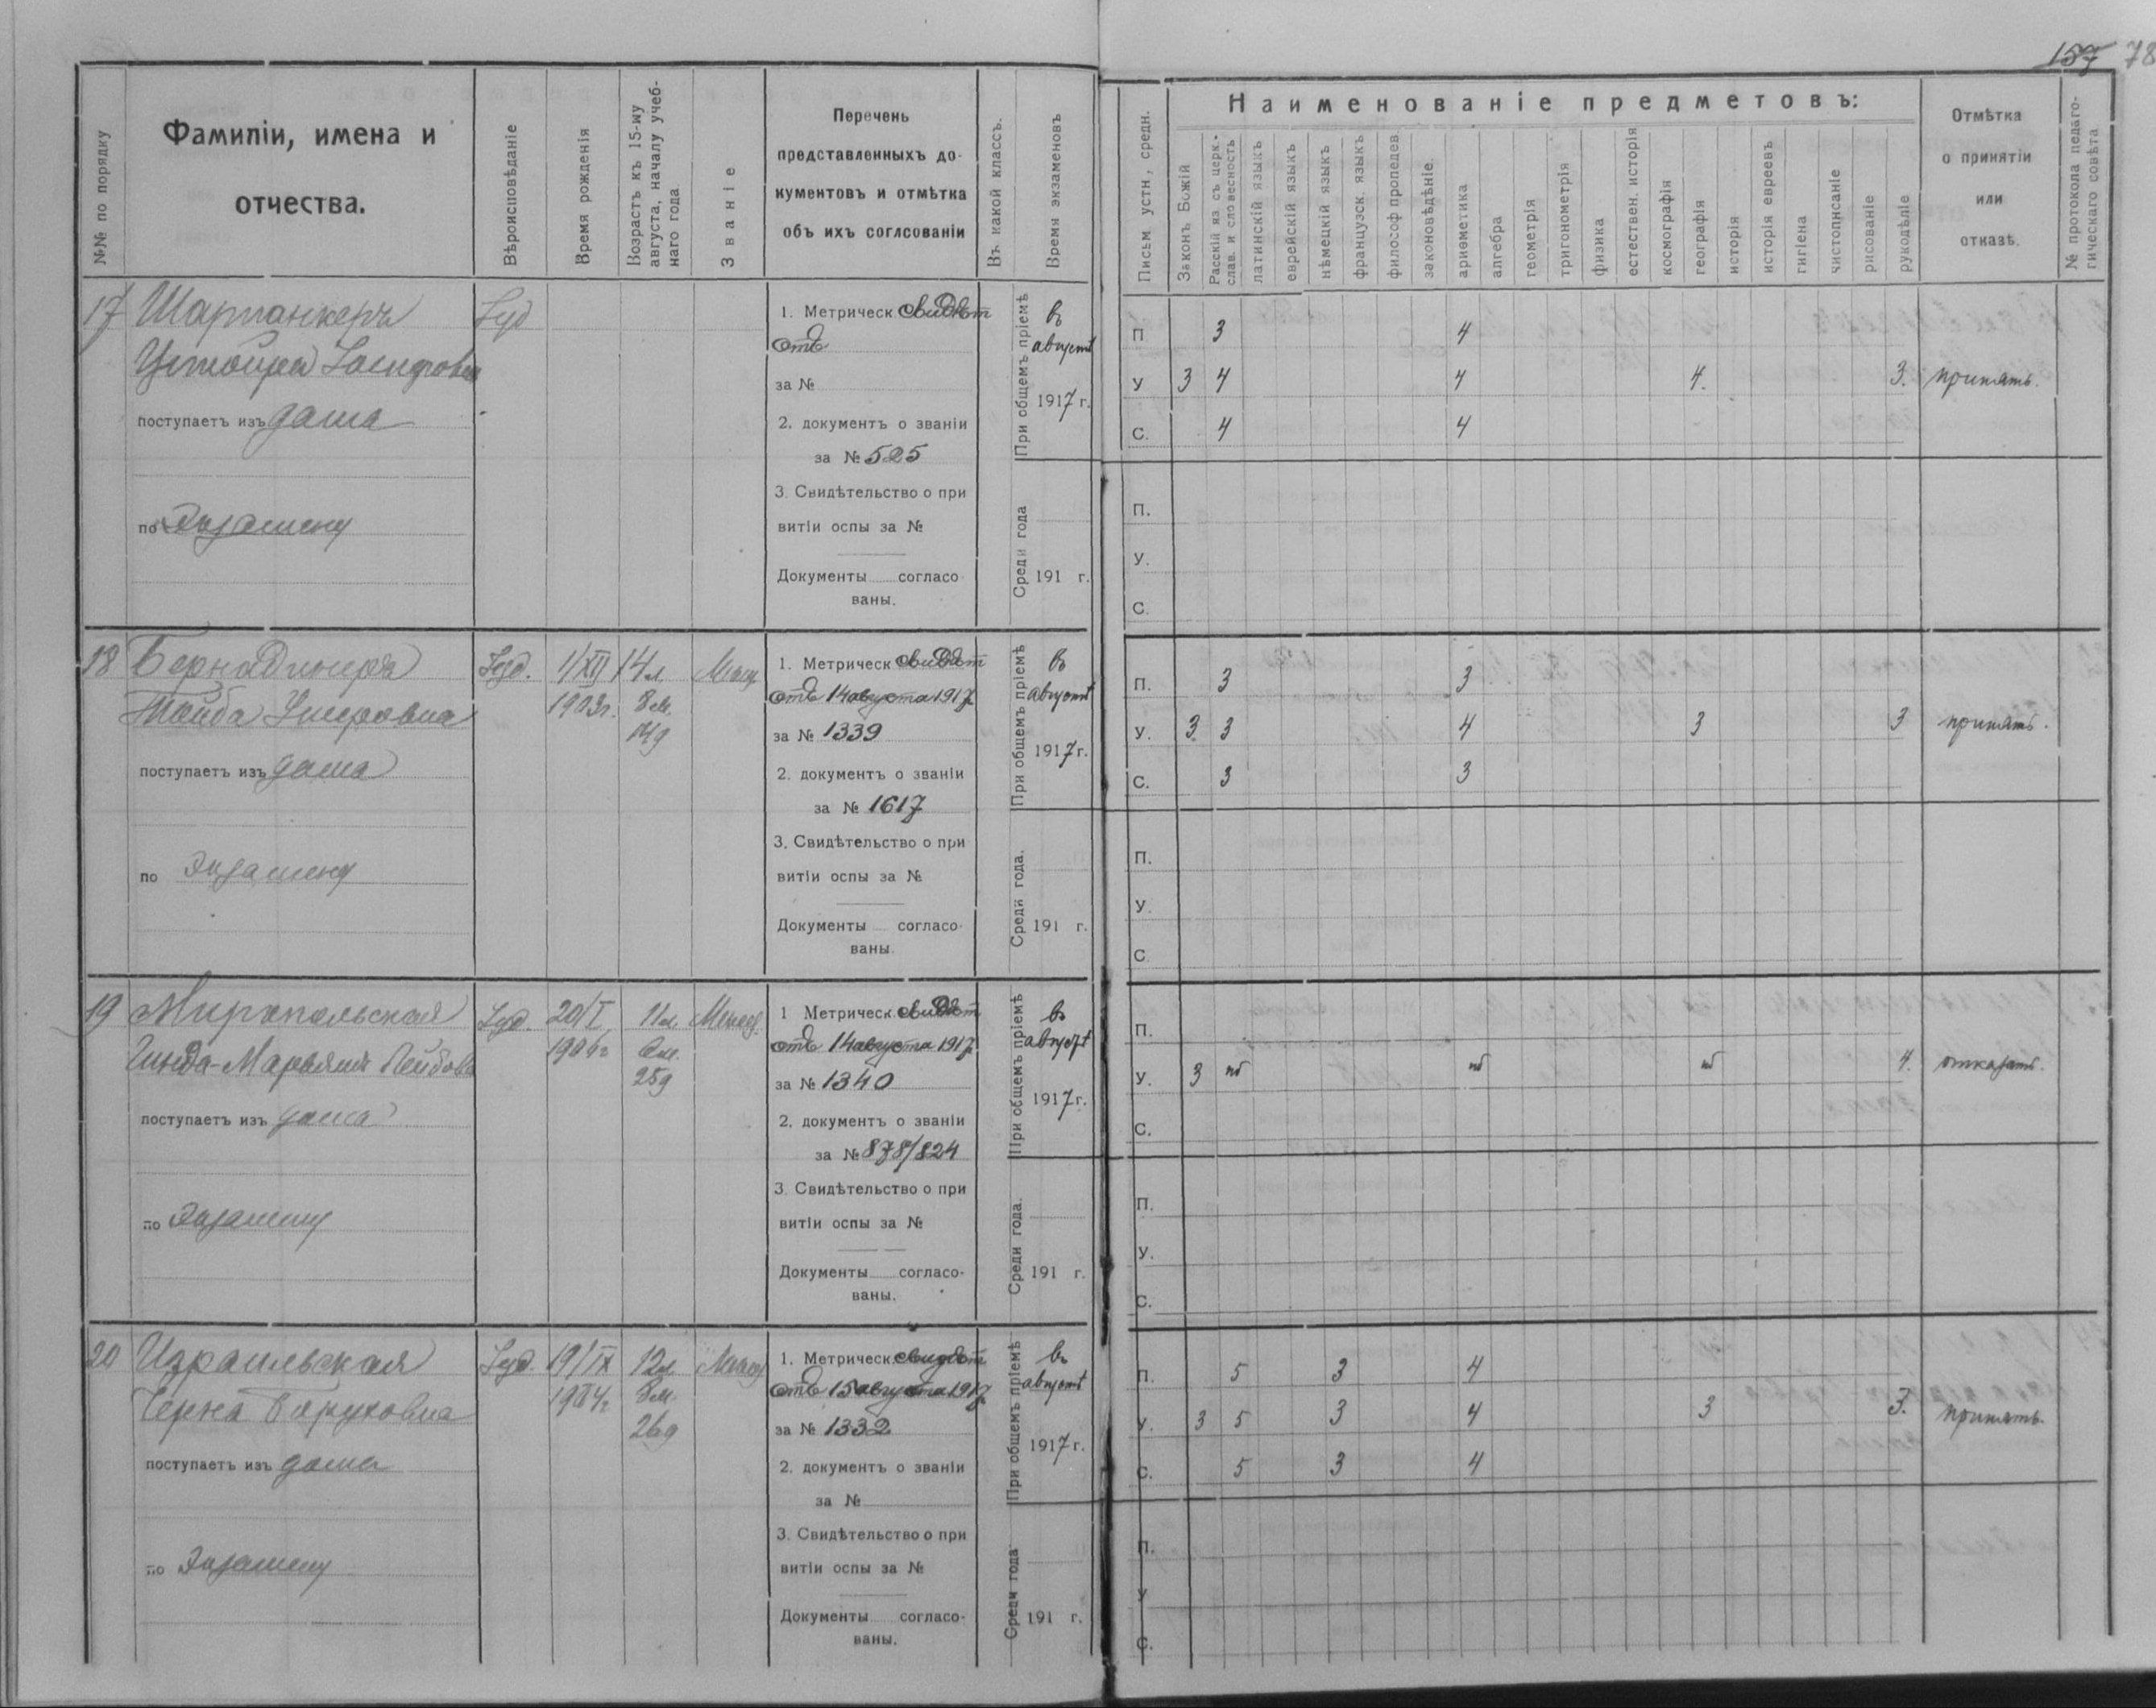 157 78
№№ по порядку
Фамиліи, имена и
отчества.
Вѣроисповѣданіе
Время рожденія
Возрастъ къ 15-му
августа, началу учеб-
наго года.
Званіе
Перечень
представленныхъ до-
кументовъ и отмѣтка
объ ихъ соглсованіи
Въ какой классъ.
Время экзаменовъ
Письм. устн, средн.
Наименованіе предметовъ:
Законъ Божій
Расскій яз съ церк.-
слав. и словесность
латинскій языкъ
еврейскій языкъ
нѣмецкій языкъ
француэск. языкъ
философ пропедев
законовѣдѣніе
ариѳметика
алгебра
геометрія
тригонометрія
физика
естествен. исторія
космографія
географія
исторія
исторія евреевъ
гигіена
чистописаніе
рисованіе
рукодѣліе
Отмѣтка
о принятіи
или
отказѣ.
№ протокола педаго-
гическаго совѣта
17 Шарпанкеръ
Іосифовна
поступаетъ изъ дома
по Экзамену
Іуд
1. Метрическ свидѣт
отъ
за №
2. документъ о званіи
за № 525
3. Свидѣтельство о при
витіи оспы за №
Документы согласо
ваны.
При общемъ пріемѣ
въ
августѣ
1917 г.
Среди года
191 г.
П 3 4
У 3 4 4 4. 3. принять.
С. 4 4
П.
У.
С.
18 Бернадинеръ
Тойба
поступаетъ изъ дома
по Экзамену
Іуд. 1/XII 14 л. Мѣщ
1903г. 8 м.
14 д
1. Метрическ свидѣт
отъ 14 августа 1917
за № 1339
2. документъ о званіи
за № 1617
3. Свидѣтельство о при
витіи оспы за №
Документы согласо-
ваны.
При общемъ пріемѣ
въ
августѣ
1917 г.
Среди года.
191 г.
П. 3 3
У. 3 3 4 3 3 принять.
С. 3 3
П.
У.
С
19 Миропольская
Гинда-Марьямъ Лейбовн
поступаетъ изъ дома
по Экзамену
Іуд. 20/I 11 л.
1906г 6 м.
25 д
1 Метрическ. свидѣт
отъ 14 августа 1917
за № 1340
2. документъ о званіи
за № 878/824
3. Свидѣтельство о при
витіи оспы за №
Документы согласо-
ваны.
При общемъ пріемѣ
въ
августѣ
1917 г.
Среди года.
191 г.
П.
У. 3 нб нб нб 4. отказать.
С.
П.
У.
С.
20 Израильская
Черна Боруховна
поступаетъ изъ дома
по Экзамену
Іуд. 19/IX 12 л.
1904г 8 м.
26 д
1. Метрическ. свидѣт
отъ 15 августа 1917
за № 1332
2. документъ о званіи
за №
3. Свидѣтельство о при
витіи оспы за №
Документы согласо-
ваны.
При общемъ пріемѣ
въ
августѣ
1917 г.
Среди года
191 г.
П. 5 3 4
У. 3 5 3 4 3 3. принять.
С. 5 3 4
П.
У
С.